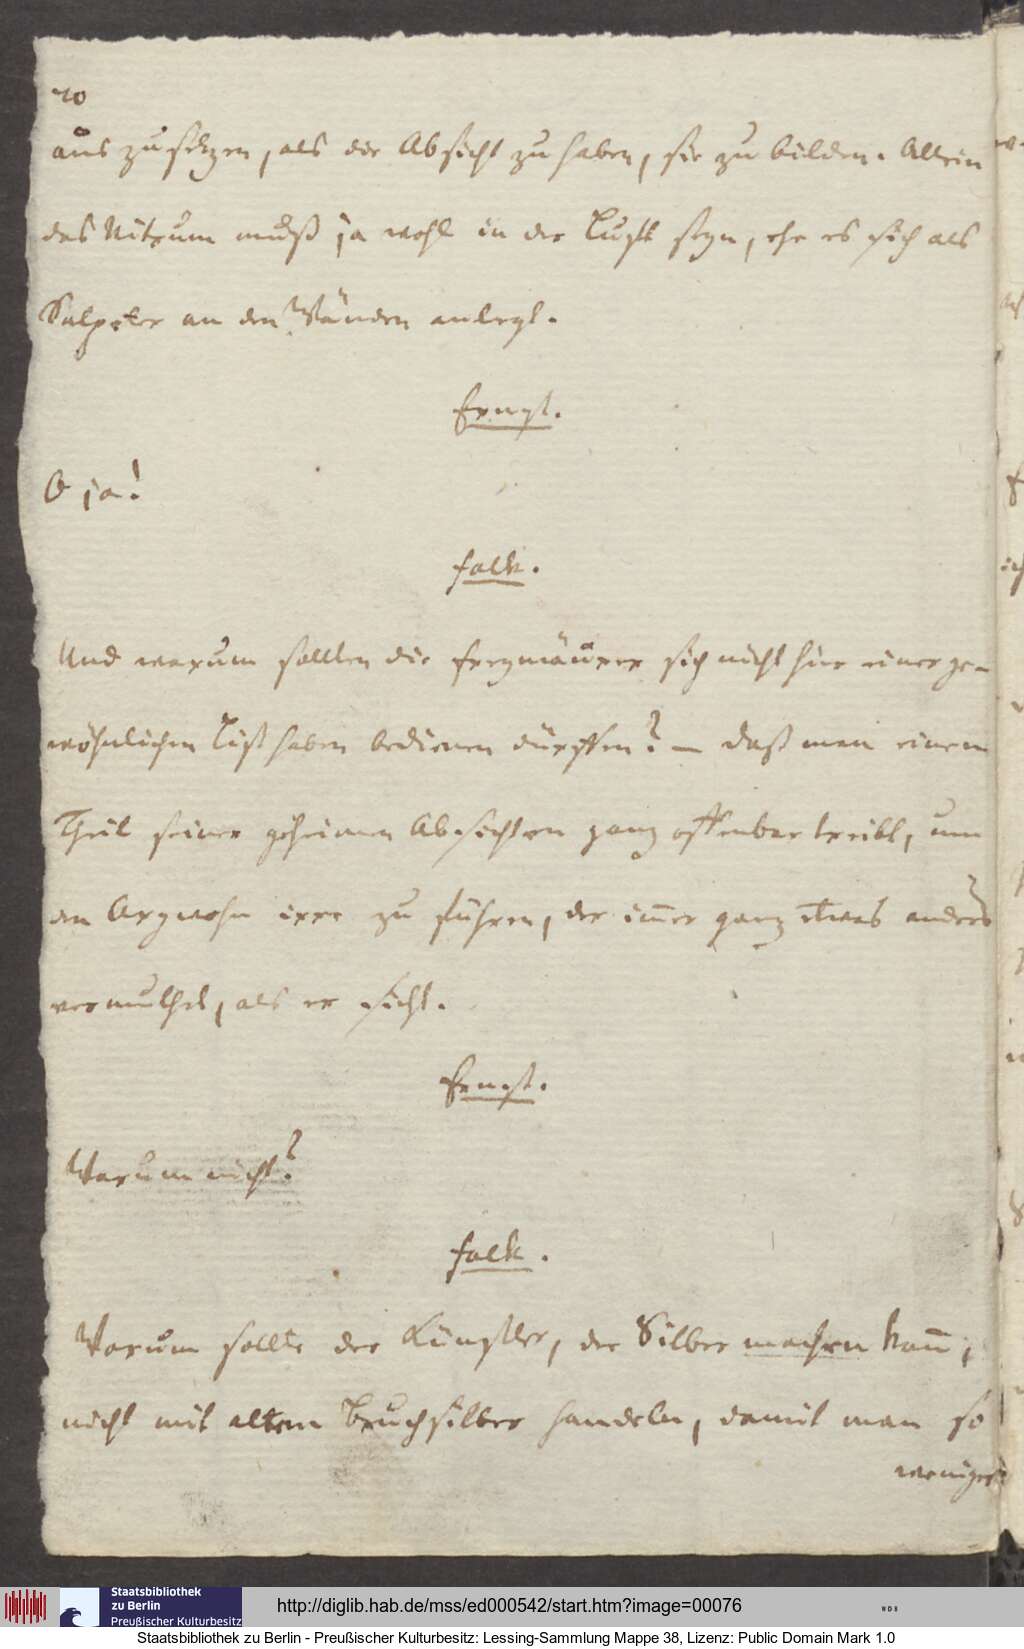 20
aus zu setzen, als die Absicht zu haben, sie zu bilden. Allein
das Nitrum muß ja wohl in der Luft seyn, ehe es sich als
Salpeter an den Wänden anlegt.
Ernst.
O ja!
Falk.
Und warum sollten die Freymäurer sich nicht hier einer ge-
wöhnlichen List haben bedienen dürffen? – daß man einen
Theil seiner geheimen Absichten ganz offenbar treibt, um
den Argwohn irre zu führen, der im̅er ganz etwas anders
vermuthet, als er sieht.
Ernst.
Warum nicht?
Falk.
Warum sollte der Künstler, der Silber machen kan̅,
nicht mit altem Bruchsilber handeln, damit man so
weniger
Staatsbibliothek
zu Berlin
Preußischer Kulturbesitz
http://diglib.hab.de/mss/ed000542/start.htm?image=00076
WDB
Staatsbibliothek zu Berlin - Preußischer Kulturbesitz: Lessing-Sammlung Mappe 38, Lizenz: Public Domain Mark 1.0